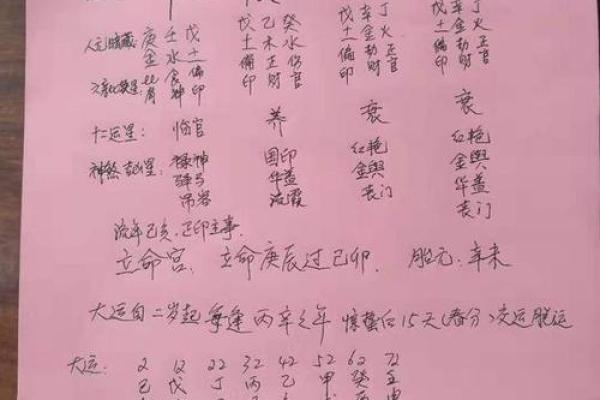 人元暗藏: 庚 壬 戊 戊 乙 癸 戊 辛 丁 戊 辛 丁
金 水 土 土 木 水 土 金 火 土 金 火
比肩 食神 偏印 偏印 正财 伤官 偏印 劫财 正官 偏印 劫财 正官
十二运星: 临官 养 衰 衰
神煞吉凶星: 禄神 国印 红艳 红艳
驿马 华盖 金舆 金舆
吊客 流霞 丧门 华盖
丧门
流年己亥,正印主事.
立命宫: 立命庚辰过己卯. 胎元: 辛未
大运自二岁起 每逢丙辛之年 惊蛰后15天(春分)交运脱运
大运: 2 12 22 32 42 52 62 72
己 戊 丁 丙 乙 甲 癸 壬